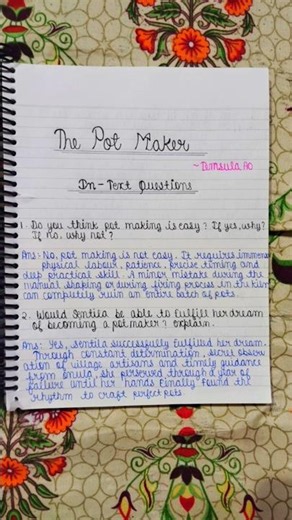 The Pot Maker
~Temsula Ao
In-Text Questions
1. Do you think pot making is easy? If yes, why?
If no, why not?
Ans:- No, pot making is not easy. It requires immense
physical labour, patience, precise timing and
deep practical skill. A minor mistake during the
manual shaping or during firing process in the kiln
can completely ruin an entire batch of pots.
2. Would Sentila be able to fulfill her dream
of becoming a pot maker? Explain.
Ans: Yes, Sentila successfully fulfilled her dream.
Through constant determination, secret observ
ation of village artisans and timely guidance
from Onula, she persevered through a year of
failure until her hands finally found the
rhythm to craft perfect pots.